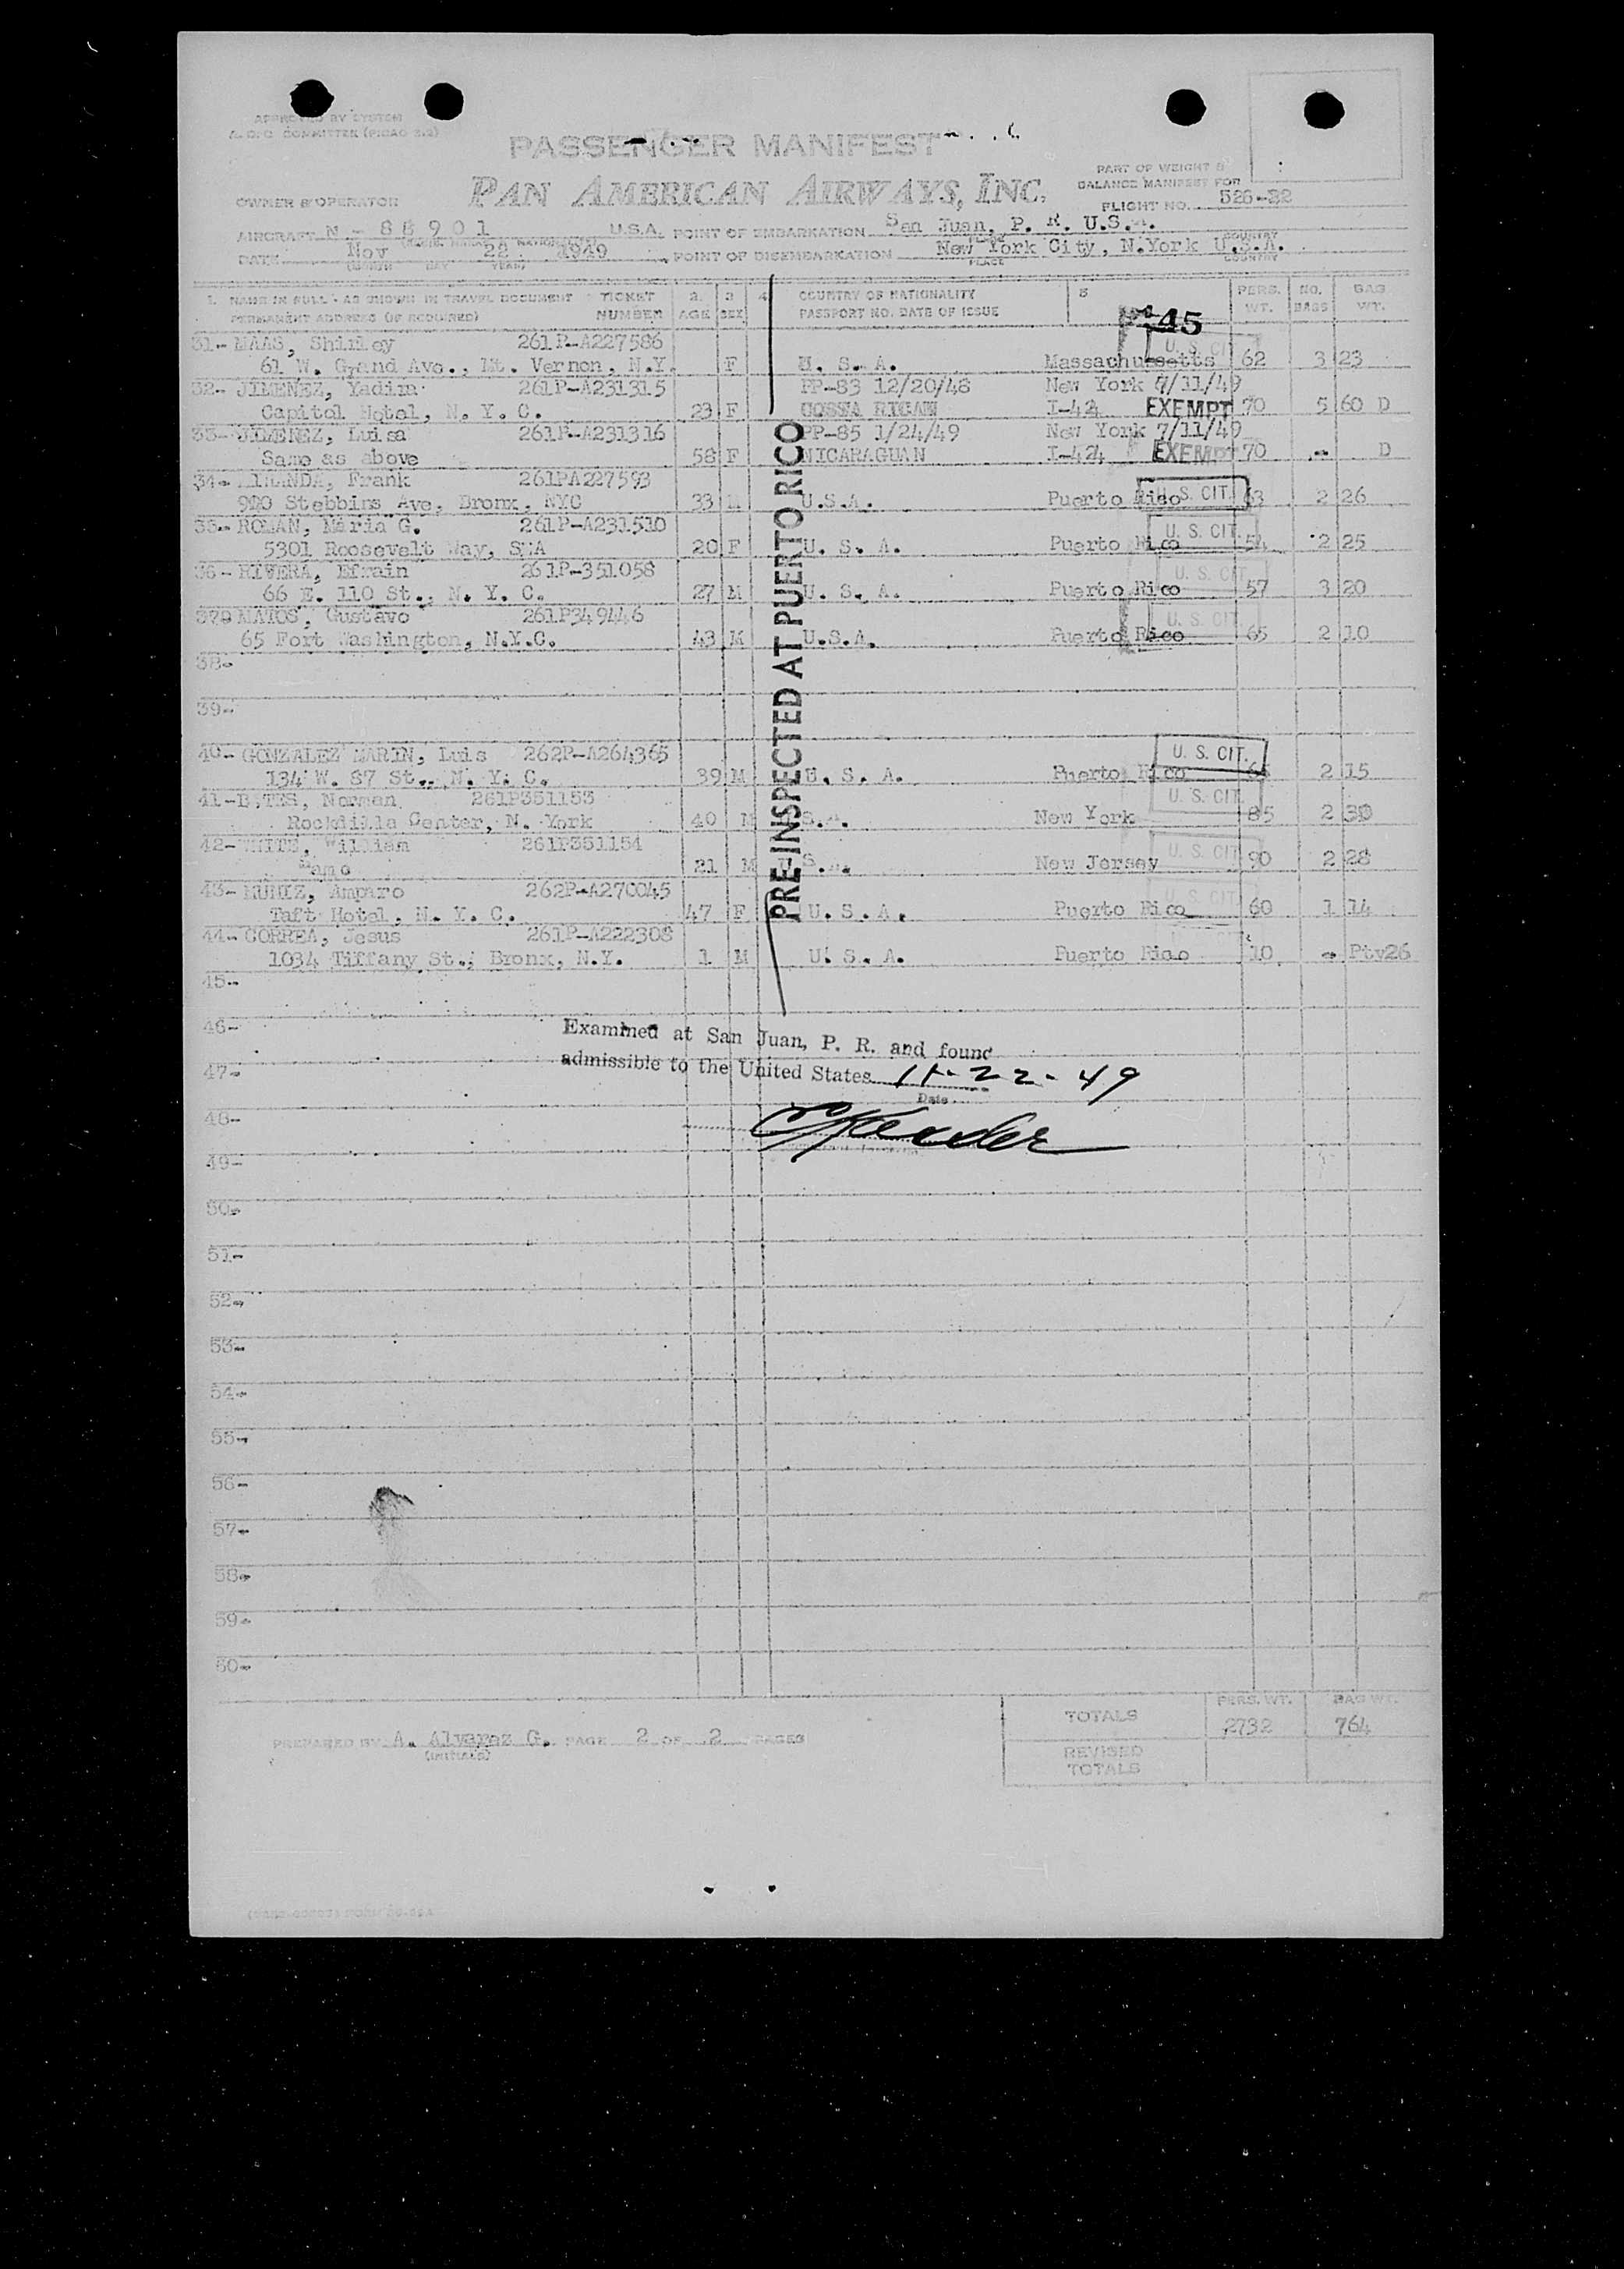 APPROVED BY SYSTEM
A. D. C. COMMITTEE (PICAO 2.2)
PASSENGER MANIFEST
PART OF WEIGHT &
BALANCE MANIFEST FOR
OWNER & OPERATOR PAN AMERICAN AIRWAYS, INC. FLIGHT NO. 526-22
AIRCRAFT N - 88901 U.S.A. POINT OF EMBARKATION San Juan, P. R. U.S.A.
DATE Nov 22 1949 POINT OF DISEMBARKATION New York City, N.York U.S.A.
(MONTH DAY YEAR) PLACE COUNTRY
1. NAME IN FULL - AS SHOWN IN TRAVEL DOCUMENT TICKET 2. 3 4 COUNTRY OF NATIONALITY 5 PERS. NO. BAG
PERMANENT ADDRESS (IF REQUIRED) NUMBER AGE SEX PASSPORT NO. DATE OF ISSUE WT. BAGS WT.
45
31- MAAS, Shirley 261P-A227586 U. S. CIT.
61 W. Grand Ave., Mt. Vernon, N.Y. F U. S. A. Massachussetts 62 3 23
32- JIMENEZ, Yadira 261P-A231315 PP-83 12/20/48 New York 7/11/49
Capitol Hotel, N. Y. C. 23 F COSTA RICAN I-424 EXEMPT 70 5 60 D
33- JIMENEZ, Luisa 261P-A231316 PP-85 1/24/49 New York 7/11/49
Same as above 58 F NICARAGUAN I-424 EXEMPT 70 - D
34- MIRANDA, Frank 261PA227593
990 Stebbins Ave, Bronx, NYC 33 M U.S.A. Puerto Rico U. S. CIT. 63 2 26
35- ROMAN, Maria G. 261P-A231510
5301 Roosevelt Way, 20 F U. S. A. Puerto Rico U. S. CIT. 54 2 25
36- RIVERA, Efrain 261P-351058 U. S. CIT.
66 E. 110 St., N. Y. C. 27 M U. S. A. Puerto Rico 57 3 20
379 MATOS, Gustavo 261P349446 U. S. CIT.
65 Fort Washington, N.Y.C. 43 M U.S.A. Puerto Rico 65 2 10
38-
39-
PRE-INSPECTED AT PUERTO RICO
40- GONZALEZ MARIN, Luis 262P-A264365 U. S. CIT.
134 W. 87 St., N. Y. C. 39 M U. S. A. Puerto Rico 2 15
41- BATES, Norman 261P351153 U. S. CIT.
Center, N. York 40 M S.A. New York 85 2 30
42- WHITE, William 261P351154 U. S. CIT.
Same 21 M S.A. New Jersey 90 2 28
43- MUNIZ, Amparo 262P-A270045 U. S. CIT.
Taft Hotel, N. Y. C. 47 F U. S. A. Puerto Rico 60 1 14
44- CORREA, Jesus 261P-A222308
1034 Tiffany St., Bronx, N.Y. 1 M U. S. A. Puerto Rico 10 - Ptv26
45-
46-
Examined at San Juan, P. R. and found
47-
admissible to the United States 11-22-49
Date
48-
49-
50-
51-
52-
53-
54-
55-
56-
57-
58-
59-
60-
PERS. WT. BAG WT.
TOTALS 2732 764
PREPARED BY A. Alvarez G. PAGE 2 OF 2 PAGES
(INITIALS)
REVISED
TOTALS